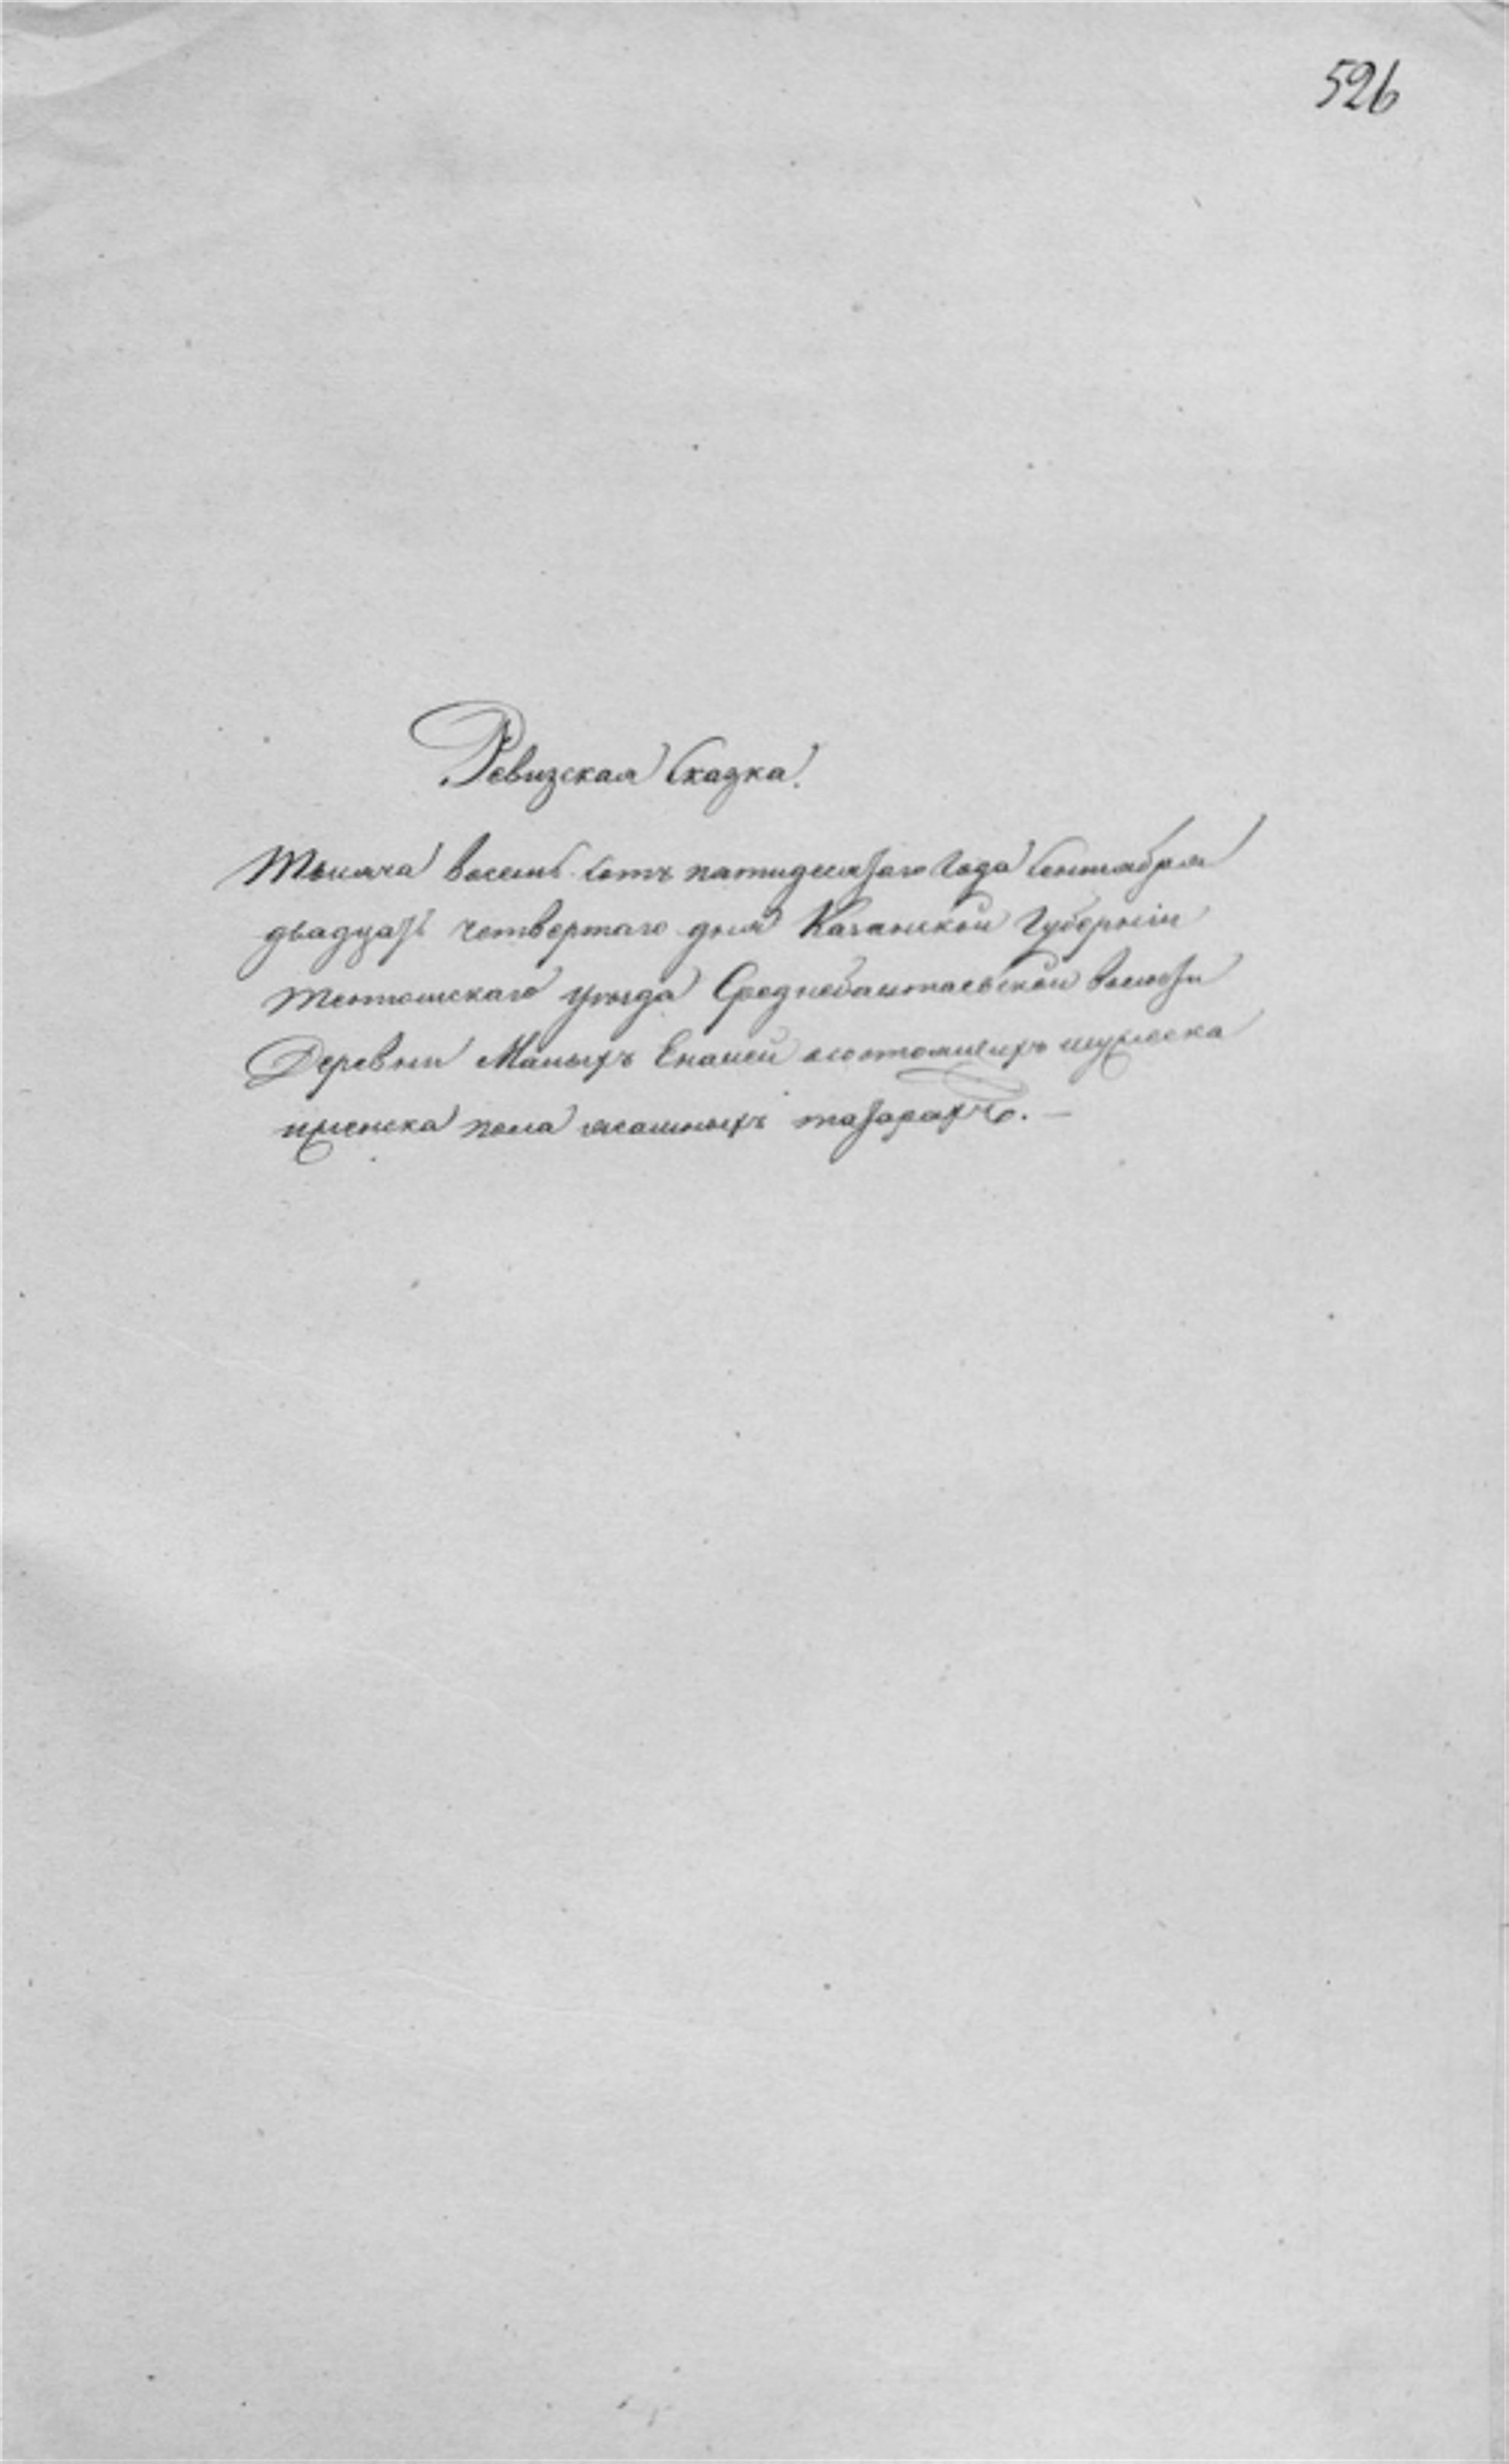 526
Ревизская Сказка.
Тысяча восемь сотъ пятидесятаго Года Сентября
двадцать четвертаго дня Казанской Губерніи
Тетюшскаго уѣзда Среднебалтаевской волости
Деревни Малыхъ Еналей состоящихъ мужеска
и женска пола ясашныхъ татарахъ. —